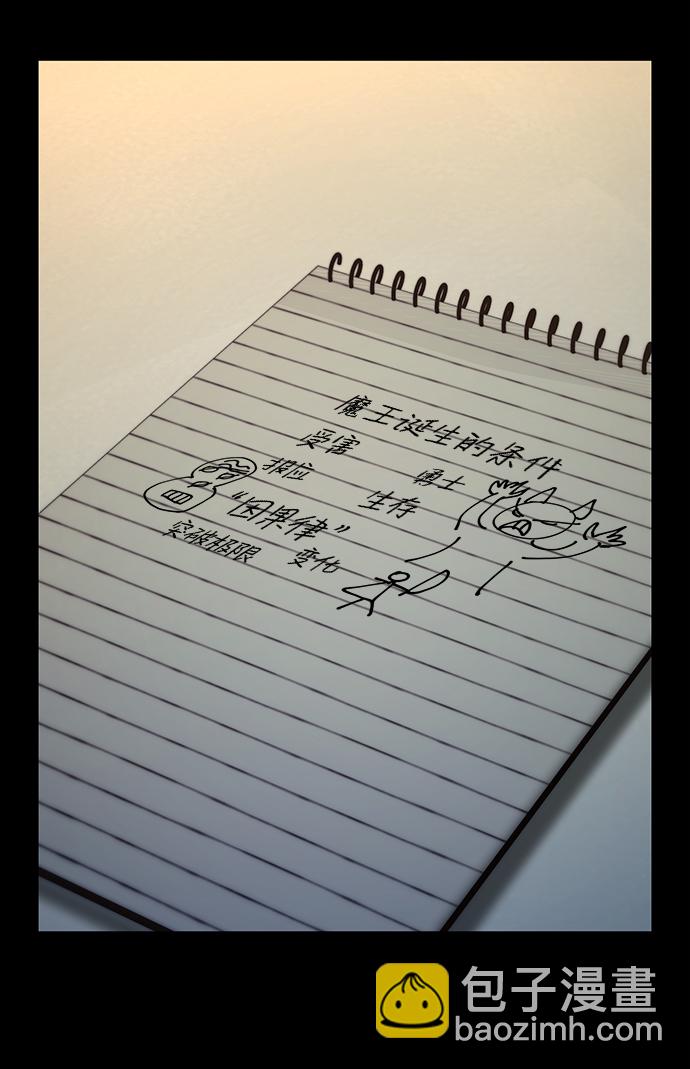 魔王诞生的条件
受害
报应
勇士
生存
“因果律”
突破极限
变化
包子漫畫
baozimh.com